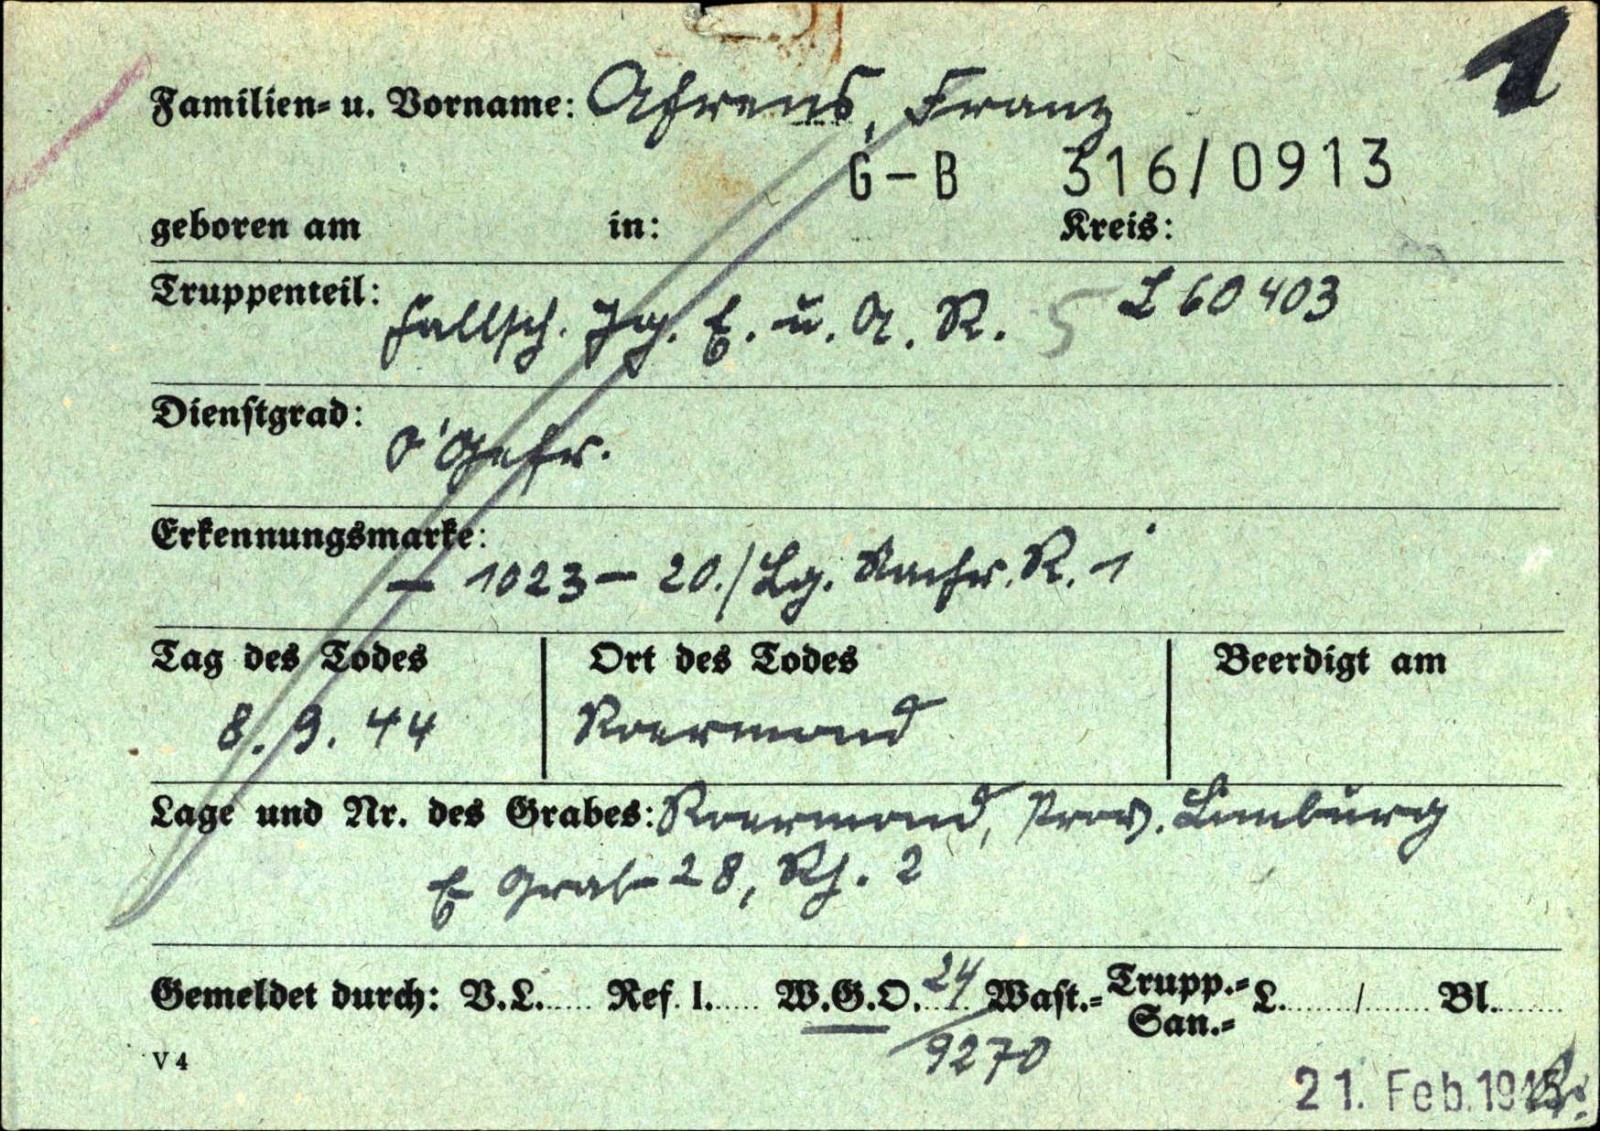 1
Familien= u. Vorname: Ahrens, Franz
G-B 316/0913
geboren am in: Kreis:
Truppenteil: Fallsch. Jg. E. u. A. R. 5 L 60403
Dienstgrad: O'Gefr.
Erkennungsmarke:
– 1023 – 20./Lg. Nachr. R. 1
Tag des Todes Ort des Todes Beerdigt am
8. 9. 44 Roermond
Lage und Nr. des Grabes: Roermond, Prov. Limburg
E Grab 28, Rh. 2
Gemeldet durch: V.L...... Ref. I...... W.G.O. 24 Wast.= Trupp.= San.= L......../....... Bl.......
9270
V 4
21. Feb. 1945